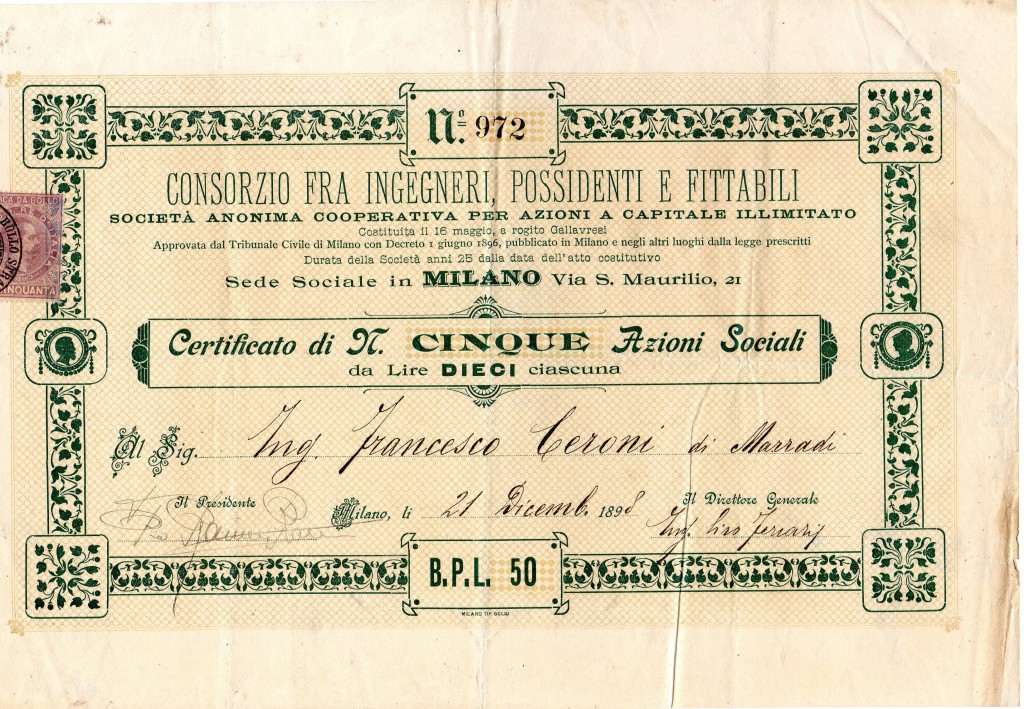 Nº 972
CONSORZIO FRA INGEGNERI, POSSIDENTI E FITTABILI
SOCIETÀ ANONIMA COOPERATIVA PER AZIONI A CAPITALE ILLIMITATO
Costituita il 16 maggio, a rogito Gallavresi
Approvata dal Tribunale Civile di Milano con Decreto 1 giugno 1896, pubblicato in Milano e negli altri luoghi dalla legge prescritti
Durata della Società anni 25 dalla data dell'atto costitutivo
Sede Sociale in MILANO Via S. Maurilio, 21
DA BOLLO
BOLLO
CINQUANTA
Certificato di N. CINQUE Azioni Sociali
da Lire DIECI ciascuna
Al Sig. Ing. Francesco Ceroni di Marradi
Il Presidente
Milano, li 21 Dicemb. 1898
Il Direttore Generale
Ing.
B.P.L. 50
MILANO TIP.